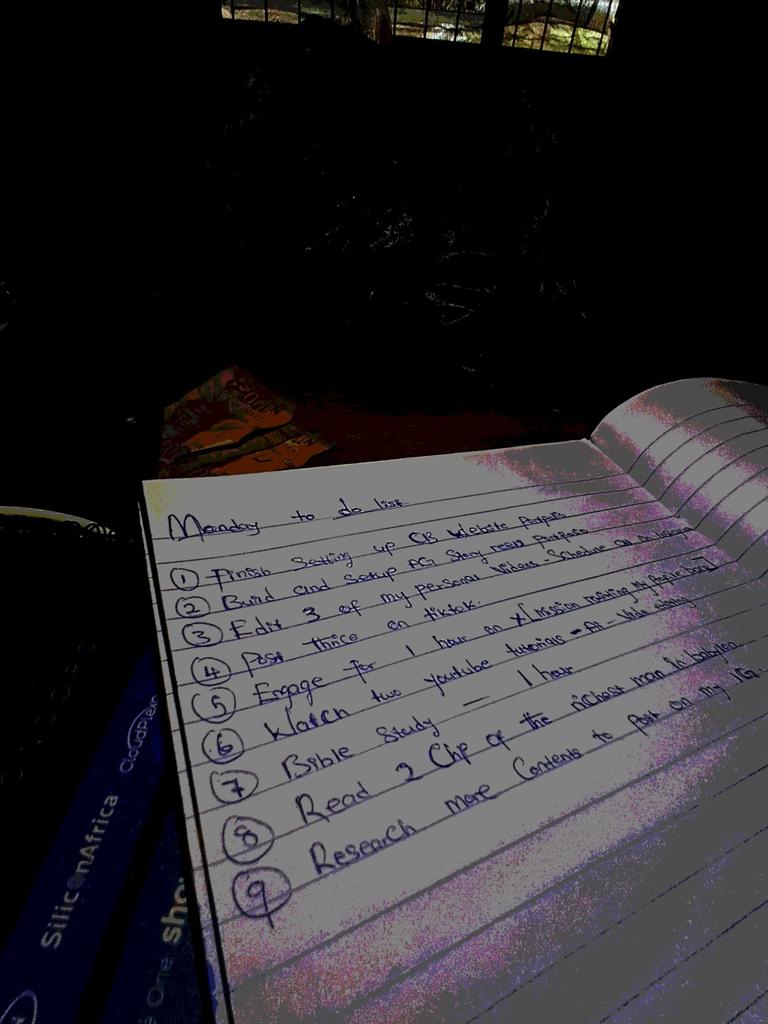 Monday to do list
1 Finish Setting up CB Website
2 Build and Setup AG Story
3 Edit 3 of my personal Videos - Schedule on
4 Post thrice on tiktok.
5 Engage for 1 hour on X
6 Watch two youtube tutorials - AI - Video editing
7 Bible Study — 1 hour
8 Read 2 Chp of the richest man in babylon
9 Research more Contents to post on my IG
CloudPlexo
SiliconAfrica
One sho